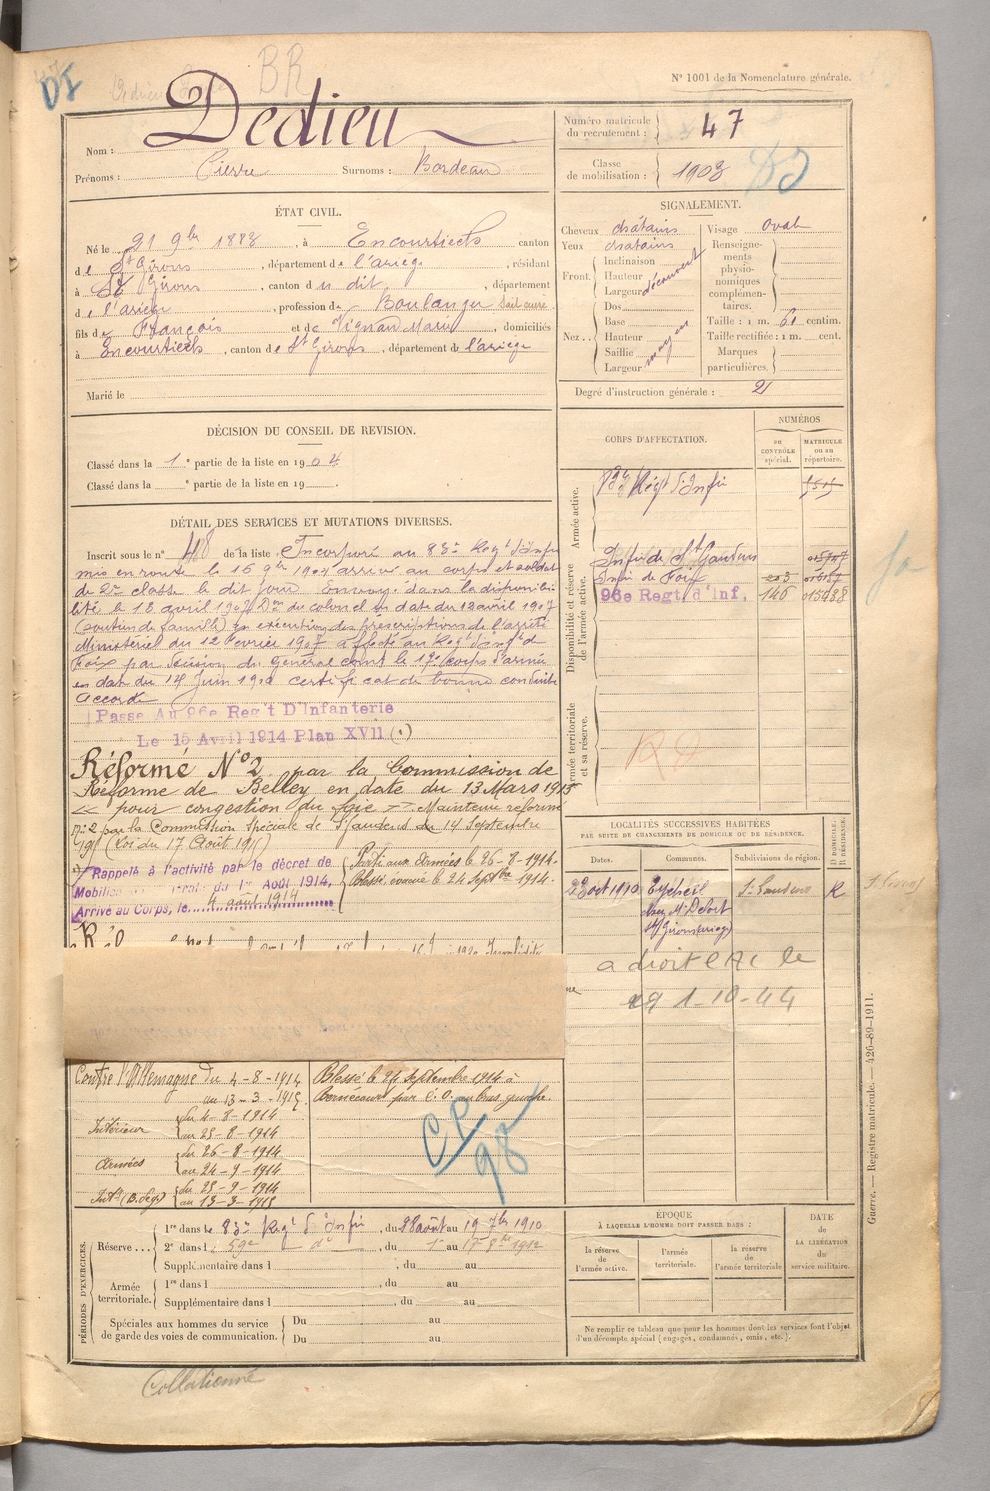 DI
BR
N° 1001 de la Nomenclature générale.
Nom : Dedieu
Prénoms : Pierre Surnoms : Bordeau
Numéro matricule du recrutement : 47
Classe de mobilisation : 1903
ÉTAT CIVIL.
Né le 21 9bre 1883, à Encourtiech canton
de St Girons, département de l'ariege, résidant
à St Girons, canton du dit, département
de l'ariege, profession de Boulanger
fils de François et de Vignau Marie, domiciliés
à Encourtiech, canton de St Girons, département de l'ariege
Marié le
SIGNALEMENT.
Cheveux châtains
Yeux châtains
Front. Inclinaison
Hauteur
Largeur découvert
Nez.. Dos
Base
Hauteur
Saillie
Largeur moyen
Visage ovale
Renseignements physionomiques complémentaires.
Taille : 1 m. 61 centim.
Taille rectifiée : 1 m. cent.
Marques particulières.
Degré d'instruction générale : 2
DÉCISION DU CONSEIL DE REVISION.
Classé dans la 1e partie de la liste en 1904
Classé dans la e partie de la liste en 19
CORPS D'AFFECTATION.
NUMÉROS
au CONTRÔLE spécial.
MATRICULE ou au répertoire.
Armée active.
83e Régt d'Infie
Disponibilité et réserve de l'armée active.
Infie de St Gaudens
Infie de Foix 203
96e Regt d'Inf. 146 015488
Armée territoriale et sa réserve.
DÉTAIL DES SERVICES ET MUTATIONS DIVERSES.
Inscrit sous le n° 48 de la liste. Incorporé au 83e Regt d'Infie
mis en route le 16 9bre 1904 arrivé au corps et soldat
de 2e classe le dit jour. Envoyé dans la disponibi-
lité le 18 avril 1907 Don du colonel en date du 12 avril 1907
(soutien de famille) En exécution des prescriptions de l'arrêté
Ministériel du 12 Fevrier 1907 affecté au Regt d'Infie de
Foix par décision du général comt le 17e corps d'armée
en date du 14 Juin 190 certificat de bonne conduite
accordé
Passé Au 96e Reg't D'Infanterie
Le 15 Avril 1914 Plan XVII (1)
Réformé N°2 par la Commission de
Réforme de Belley en date du 13 Mars 1915
<< pour congestion du foie >> Maintenu réformé
n° 2 par la Commission Spéciale de St Gaudens du 14 Septembre
191 (loi du 17 Août 1915)
Rappelé à l'activité par le décret de
Mobilisation générale du 1er Août 1914,
Arrivé au Corps, le 4 août 1914
Parti aux Armées le 26-8-1914.
Blessé, évacué le 24 Septbre 1914.
LOCALITÉS SUCCESSIVES HABITÉES
PAR SUITE DE CHANGEMENTS DE DOMICILE OU DE RÉSIDENCE.
Dates. Communes. Subdivisions de région. D. DOMICILE. R. RÉSIDENCE.
23 oct 1910 Eycheil St Gaudens R
chez Mr Delort
St Girons (ariege)
a droit C AC le
1-10-44
Contre l'Allemagne du 4-8-1914
au 13-3-1915.
Intérieur du 4-8-1914
au 25-8-1914
Armées du 26-8-1914
au 24-9-1914
Intr (B. Leg.) du 25-9-1914
au 13-3-1915
Blessé le 24 Septembre 1914 à
Bernécourt par E. O. au bras gauche.
CP/98
PÉRIODES D'EXERCICES.
Réserve... 1re dans le 83e Regt d'Infie, du 28 août au 19 7bre 1910
2e dans le 59e do, du 1er au 17 8bre 1912
Supplémentaire dans l , du au
Armée territoriale. 1re dans l , du au
Supplémentaire dans l , du au
Spéciales aux hommes du service de garde des voies de communication. Du au
Du au
ÉPOQUE
À LAQUELLE L'HOMME DOIT PASSER DANS :
la réserve de l'armée active.
l'armée territoriale.
la réserve de l'armée territoriale
DATE de LA LIBÉRATION du service militaire.
Ne remplir ce tableau que pour les hommes dont les services font l'objet
d'un décompte spécial (engagés, condamnés, omis, etc.).
Guerre. — Registre matricule. — 426-89-1911.
Collationné